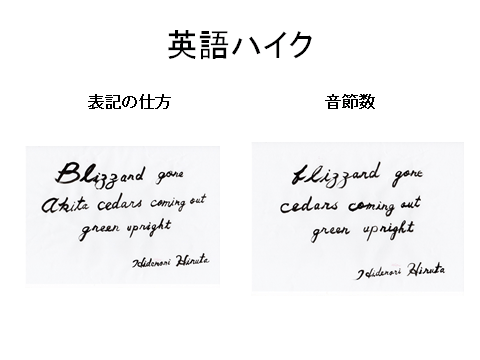 英語ハイク
表記の仕方
Blizzard gone
Akita cedars coming out
green upright
Hidenori Hiruta
音節数
blizzard gone
cedars coming out
green upright
Hidenori Hiruta